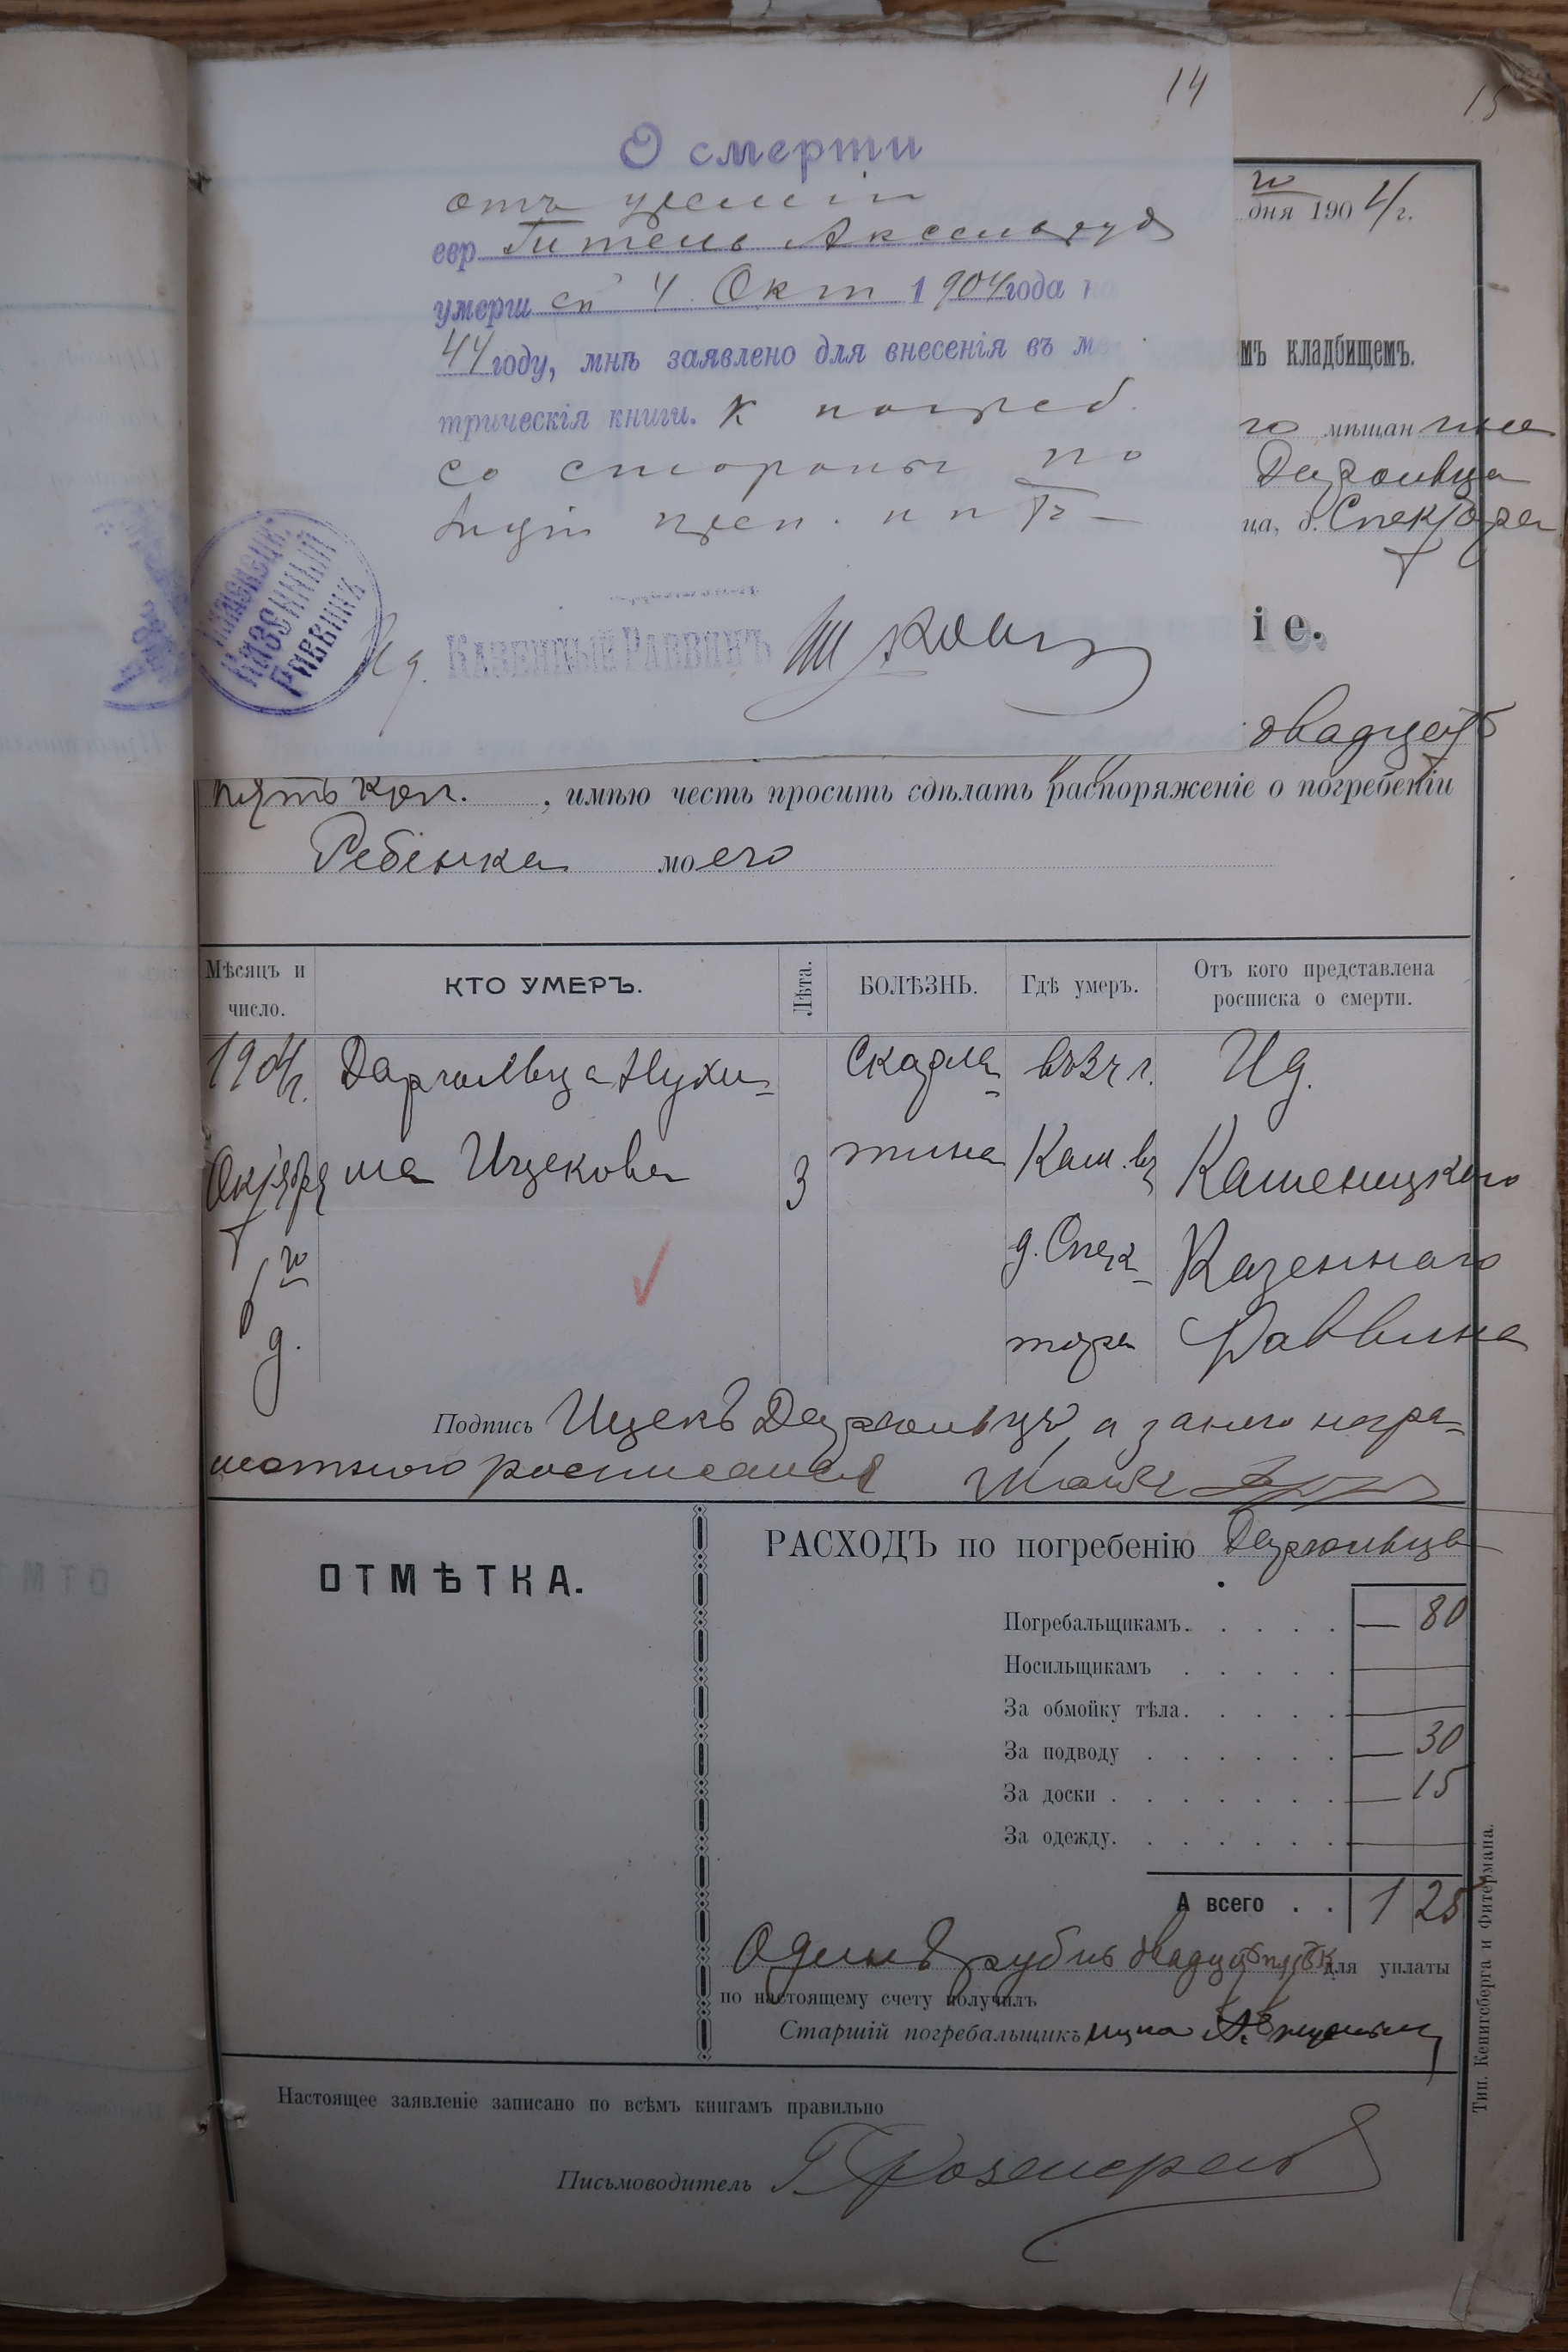 14
15
О смерти
отъ
евр Гитель Аксельрудъ
умерш ей 4 Окт 1904 года на
44 году, мнѣ заявлено для внесенія въ ме
трическія книги. К погреб.
со стороны по
КАМЕНЕЦК.
КАЗЕННЫЙ
РАВВИНЪ
Ид. КАЗЕННЫЙ РАВВИНЪ
го
дня 1904 г.
мъ кладбищемъ.
го мѣщан ина
ца, д. Спектора
іе.
двадцать
пять коп. , имѣю честь просить сдѣлать распоряженіе о погребеніи
Ребенка моего
Мѣсяцъ и число. КТО УМЕРЪ. Лѣта. БОЛѢЗНЬ. Гдѣ умеръ. Отъ кого представлена росписка о смерти.
1904 г. Скарла- въ 3 ч г. Ид.
Октября Ицекова 3 тина Кам. въ Каменецкого
6 го д. Спек- Казеннаго
д. тора Раввина
Подпись Ицекъ а за него негра-
мотного росписался
ОТМѢТКА.
РАСХОДЪ по погребенію
Погребальщикамъ. — 80
Носильщикамъ —
За обмойку тѣла. —
За подводу — 30
За доски — 15
За одежду. —
А всего 1 25
Одинъ рубль двадцать пять к для уплаты
по настоящему счету получилъ
Старшій погребальщикъ
Настоящее заявленіе записано по всѣмъ книгамъ правильно
Письмоводитель
Тип. Кенигсберга и Фитермана.